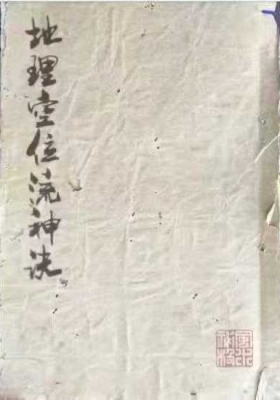 地理空位流神诀